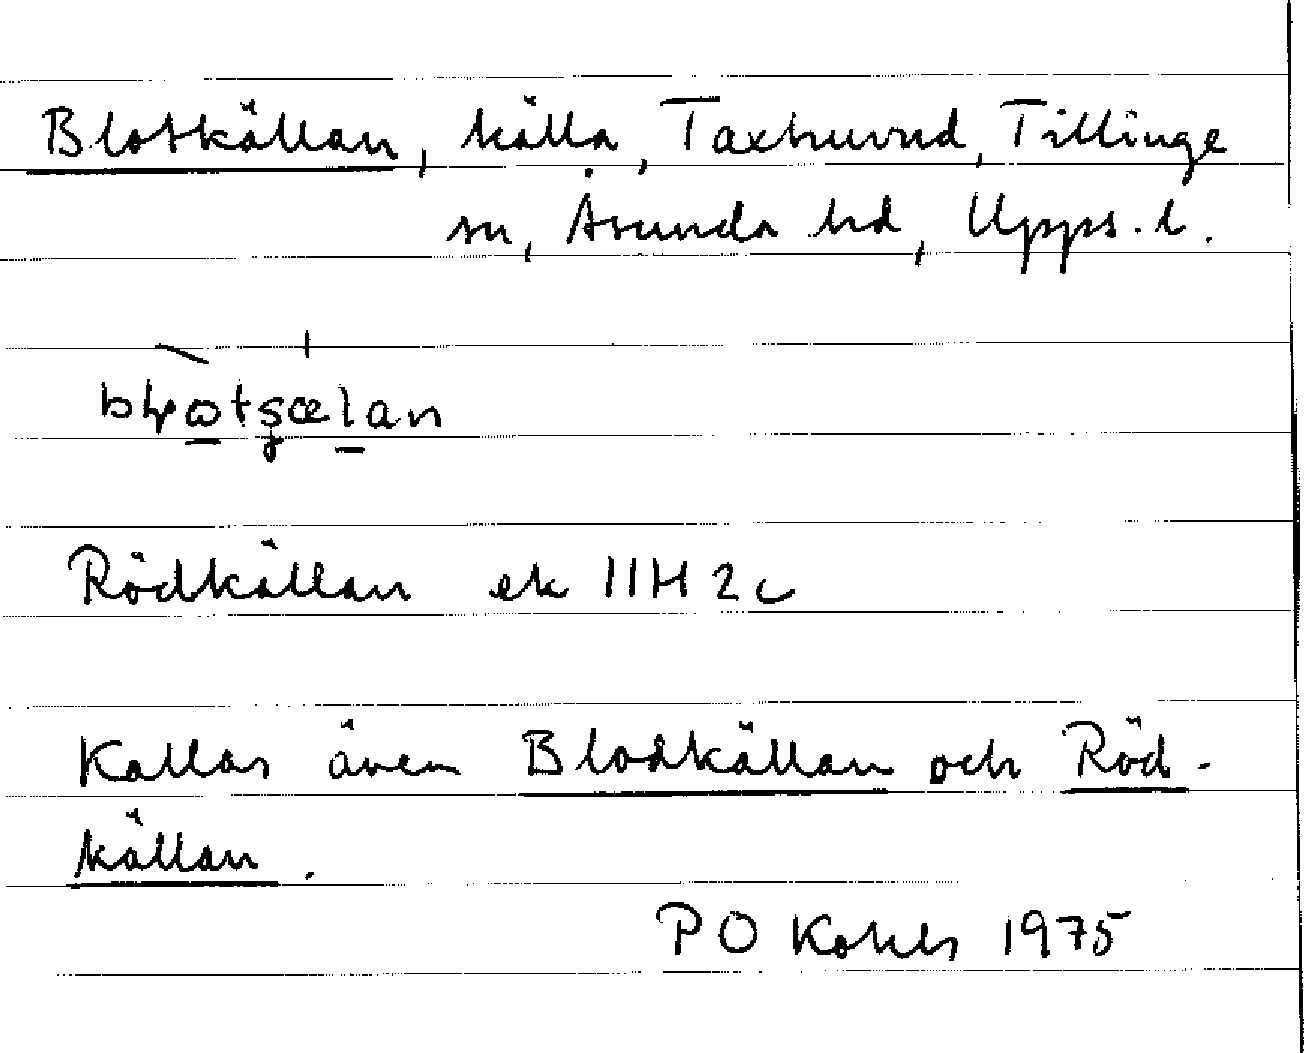 Blotkällan, källa, Taxhuvud, Tillinge
sn, Åsunda hd, Upps. l.
Rödkällan ek 11H 2c
Kallas även Blodkällan och Röd-
källan.
P O 1975